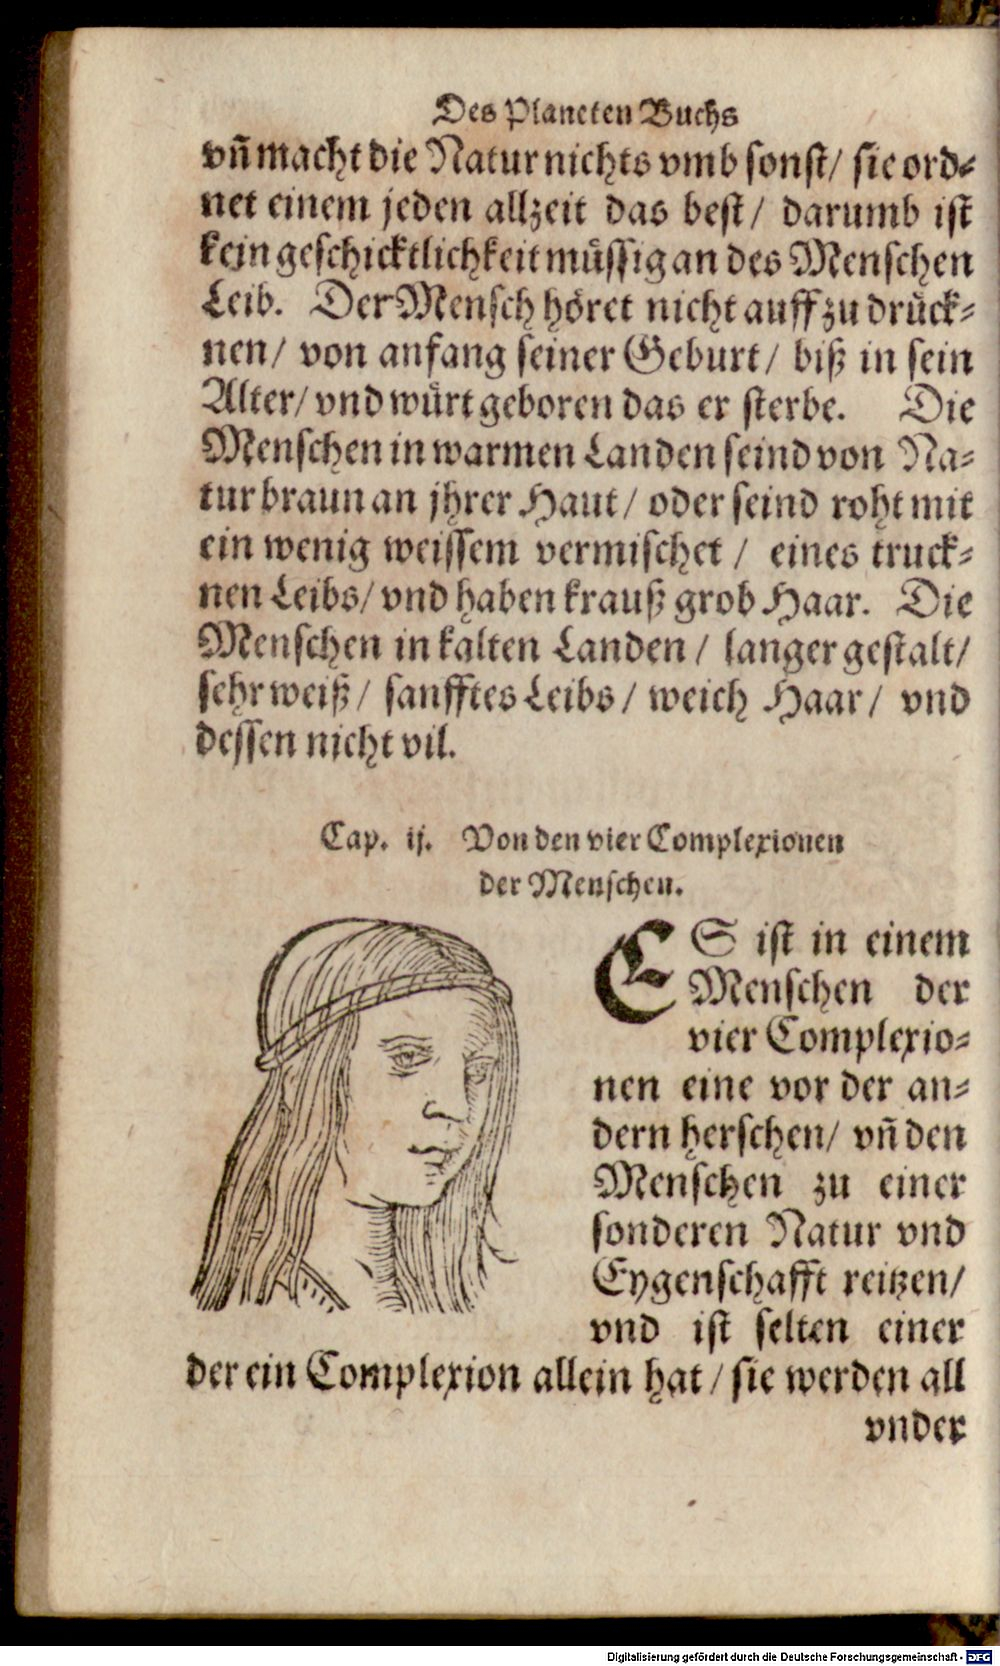 Des Planeten Buchs
vñ macht die Natur nichts vmb sonst/ sie ord⸗
net einem jeden allzeit das best/ darumb ist
kein geschicktlichkeit müssig an des Menschen
Leib. Der Mensch höret nicht auff zu drück⸗
nen/ von anfang seiner Geburt/ biß in sein
Alter/ vnd würt geboren das er sterbe. Die
Menschen in warmen Landen seind von Na⸗
tur braun an jhrer Haut/ oder seind roht mit
ein wenig weissem vermischet/ eines truck⸗
nen Leibs/ vnd haben krauß grob Haar. Die
Menschen in kalten Landen/ langer gestalt/
sehr weiß/ sanfftes Leibs/ weich Haar/ vnd
dessen nicht vil.
Cap. ij. Von den vier Complexionen
der Menschen.
ES ist in einem
Menschen der
vier Complexio⸗
nen eine vor der an⸗
dern herschen/ vñ den
Menschen zu einer
sonderen Natur vnd
Eygenschafft reitzen/
vnd ist selten einer
der ein Complexion allein hat/ sie werden all
vnder
Digitalisierung gefördert durch die Deutsche Forschungsgemeinschaft - DFG